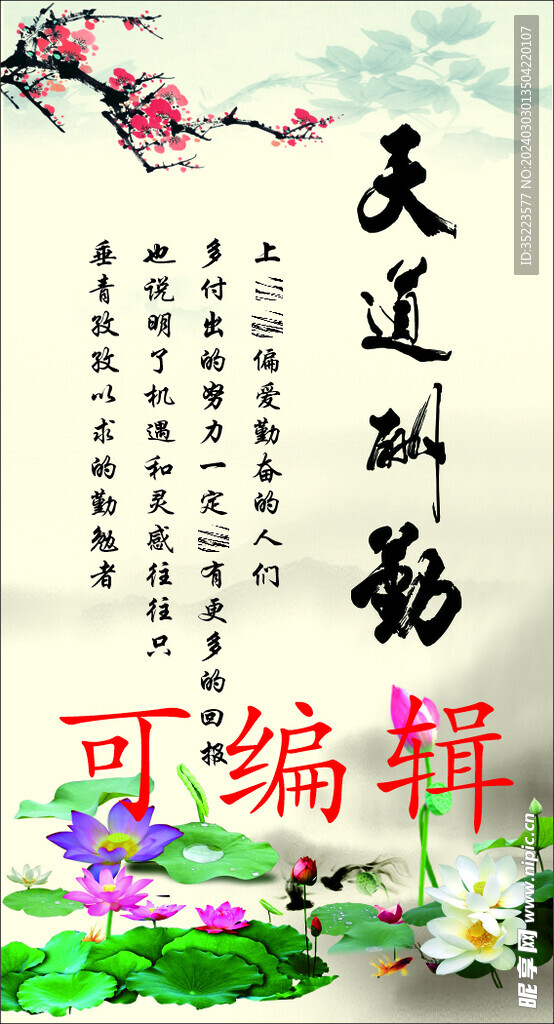 天道酬勤
上偏爱勤奋的人们
多付出的努力一定有更多的回报
也说明了机遇和灵感往往只
垂青孜孜以求的勤勉者
可编辑
ID:35223577 NO:20240303013504220107
昵享网 www.nipic.cn